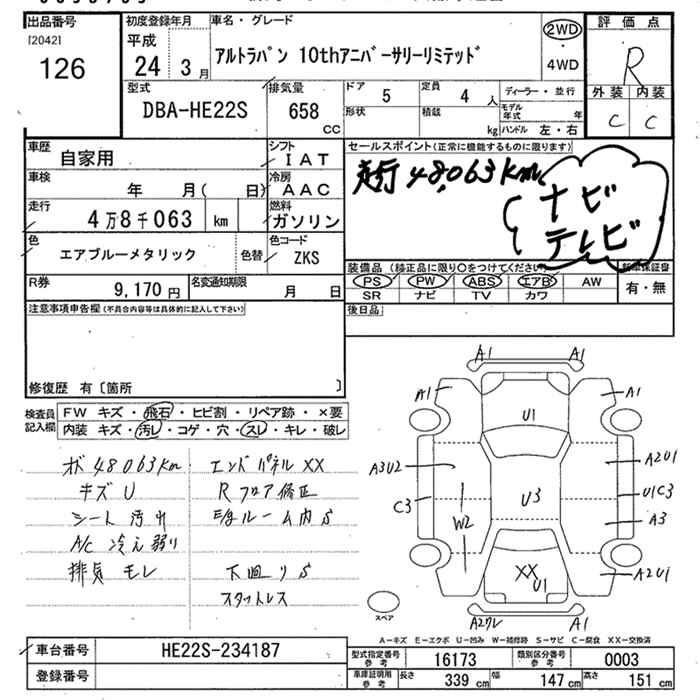 出品番号 初度登録年月 車名・グレード 評価点
[2042] 平成
126 24 年 3 月 アルトラパン 10thアニバーサリーリミテッド 2WD ・ 4WD R
外装 内装
C C
型式 排気量 ドア 5 定員 4 人 ディーラー・並行
DBA-HE22S 658 cc 形状 積載 kg モデル年式 年
ハンドル 左・右
車歴 自家用 シフト IAT セールスポイント(正常に機能するものに限ります)
車検 年 月( 日) 冷房 AAC 走行 48,063km
走行 4万8千063 km 燃料 ガソリン ナビ
色 エアブルーメタリック 色替 色コード ZKS テレビ
装備品 (純正品に限り○をつけてください) 新車保証書
R券 9,170 円 名変通知期限 月 日 PS PW ABS エアB AW 有・無
SR ナビ TV カワ
注意事項申告欄(不具合内容等は具体的に記入して下さい) 後日品
修復歴 有〔箇所 〕
検査員記入欄 FW キズ・飛石・ヒビ割・リペア跡・×要
内装 キズ・汚レ・コゲ・穴・スレ・キレ・破レ
ボ 48063km エンドパネルXX
キズ U Rフロア修正
シート 汚れ ルーム内S
A/C 冷え弱り
排気 モレ 下回りS
スタットレス
A1 A1
A1 A1
U1
A3U2 A2U1
C3 U3 U1C3
W2 A3
XX U1 A2U1
スペア A2ワレ A1
A-キズ E-エクボ U-凹み W-補修跡 S-サビ C-腐食 XX-交換済
車台番号 HE22S-234187
型式指定番号 参考 16173 類別区分番号 参考 0003
登録番号
車庫証明用 参考 長さ 339 cm 幅 147 cm 高さ 151 cm